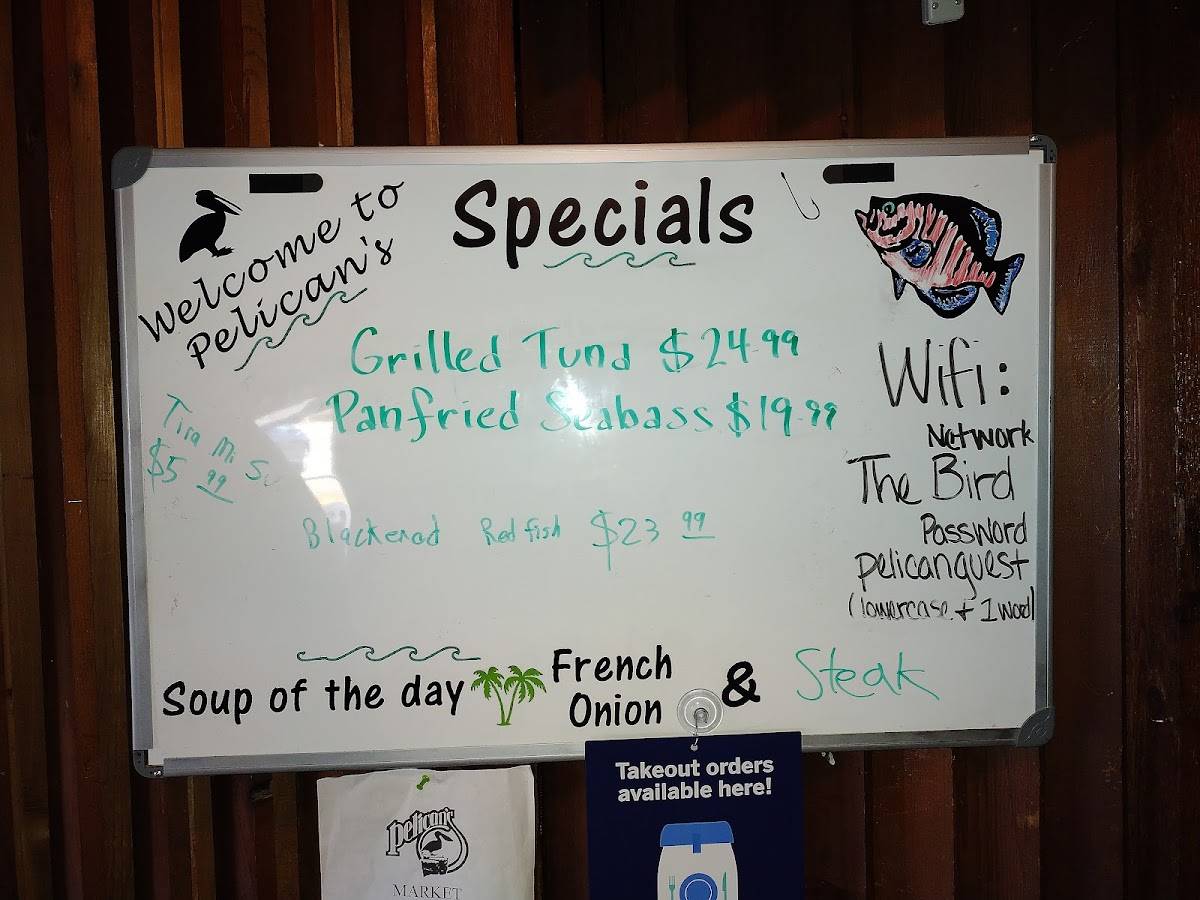 Welcome to
Pelican's
Specials
Grilled Tuna $24.99
Panfried Seabass $19.99
Tira Mi Su
$5 99
Blackened Redfish $23 99
Wifi:
Network
The Bird
Password
pelicanguest
(lowercase + 1 word)
Soup of the day
French
Onion
& Steak
Takeout orders
available here!
pelican's
MARKET